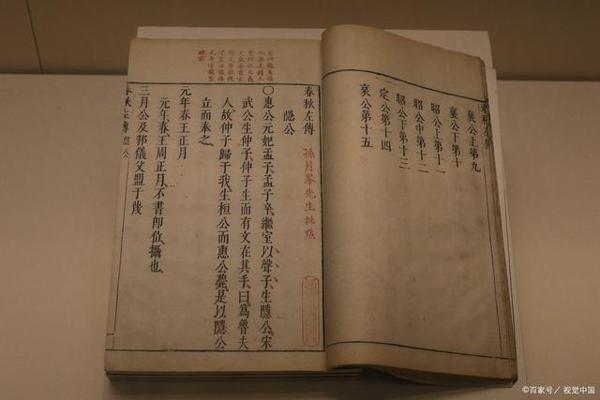 襄公上第九
襄公下第十
昭公上第十一
昭公中第十二
昭公下第十三
定公第十四
哀公第十五
春秋左傳 孫月峯先生批點
隱公
○惠公元妃孟子孟子卒繼室以聲子生隱公宋
武公生仲子仲子生而有文在其手曰為魯夫
人故仲子歸于我生桓公而惠公薨是以隱公
立而奉之
元年春王正月
元年春王周正月不書即位攝也
三月公及邾儀父盟于蔑
春秋左傳 隱公
©百家号/视觉中国